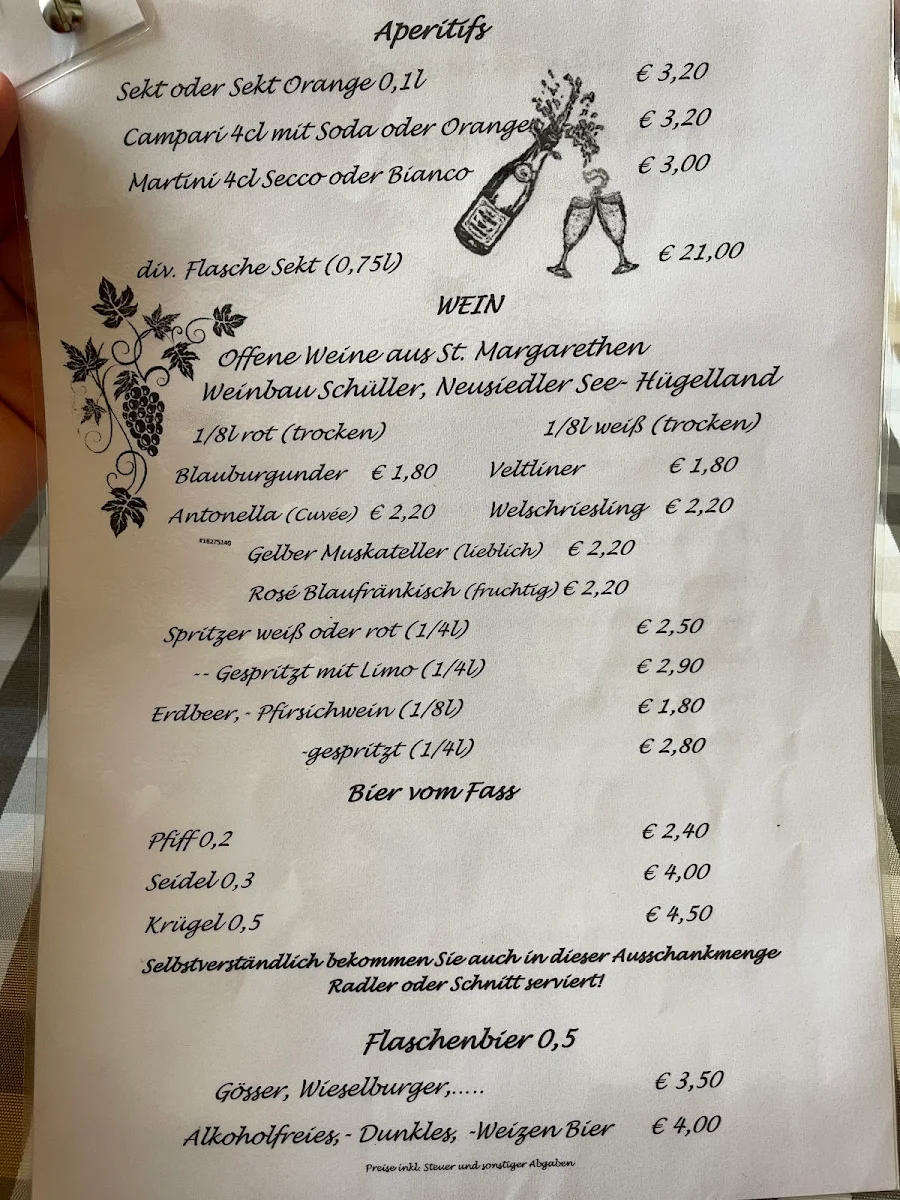 Aperitifs
Sekt oder Sekt Orange 0,1l € 3,20
Campari 4cl mit Soda oder Orange € 3,20
Martini 4cl Secco oder Bianco € 3,00
div. Flasche Sekt (0,75l) € 21,00
WEIN
Offene Weine aus St. Margarethen
Weinbau Schüller, Neusiedler See- Hügelland
1/8l rot (trocken) 1/8l weiß (trocken)
Blauburgunder € 1,80 Veltliner € 1,80
Antonella (Cuvée) € 2,20 Welschriesling € 2,20
#16275140
Gelber Muskateller (lieblich) € 2,20
Rosé Blaufränkisch (fruchtig) € 2,20
Spritzer weiß oder rot (1/4l) € 2,50
-- Gespritzt mit Limo (1/4l) € 2,90
Erdbeer,- Pfirsichwein (1/8l) € 1,80
-gespritzt (1/4l) € 2,80
Bier vom Fass
Pfiff 0,2 € 2,40
Seidel 0,3 € 4,00
Krügel 0,5 € 4,50
Selbstverständlich bekommen Sie auch in dieser Ausschankmenge
Radler oder Schnitt serviert!
Flaschenbier 0,5
Gösser, Wieselburger,..... € 3,50
Alkoholfreies,- Dunkles, -Weizen Bier € 4,00
Preise inkl. Steuer und sonstiger Abgaben